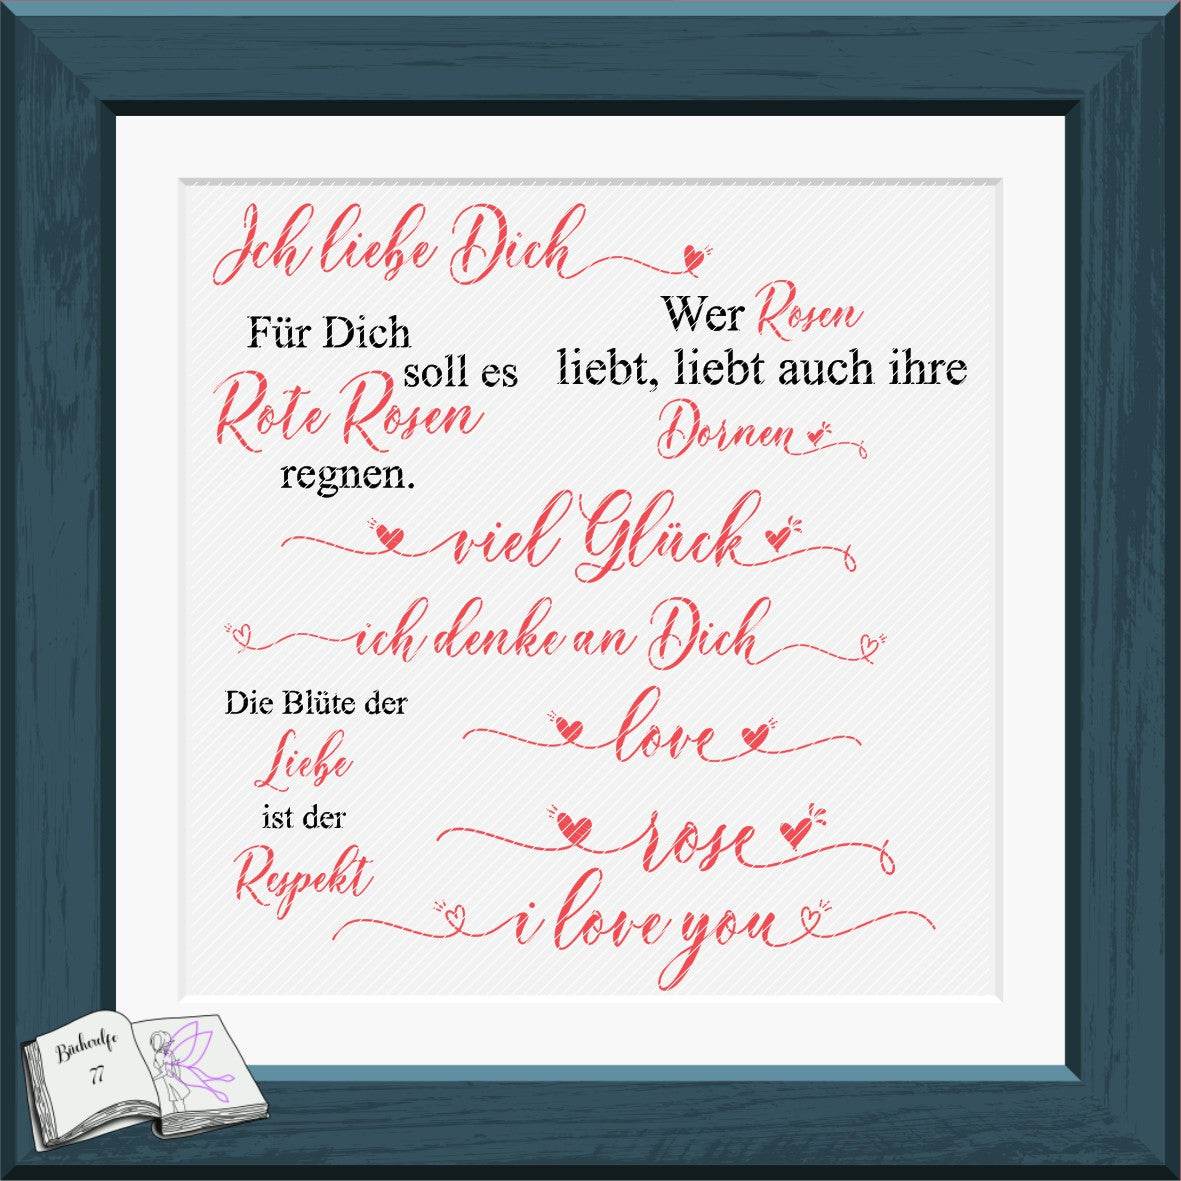 Ich liebe Dich
Für Dich
soll es
Rote Rosen
regnen.
Wer Rosen
liebt, liebt auch ihre
Dornen
viel Glück
ich denke an Dich
Die Blüte der
Liebe
ist der
Respekt
love
rose
i love you
Bücherelfe
77